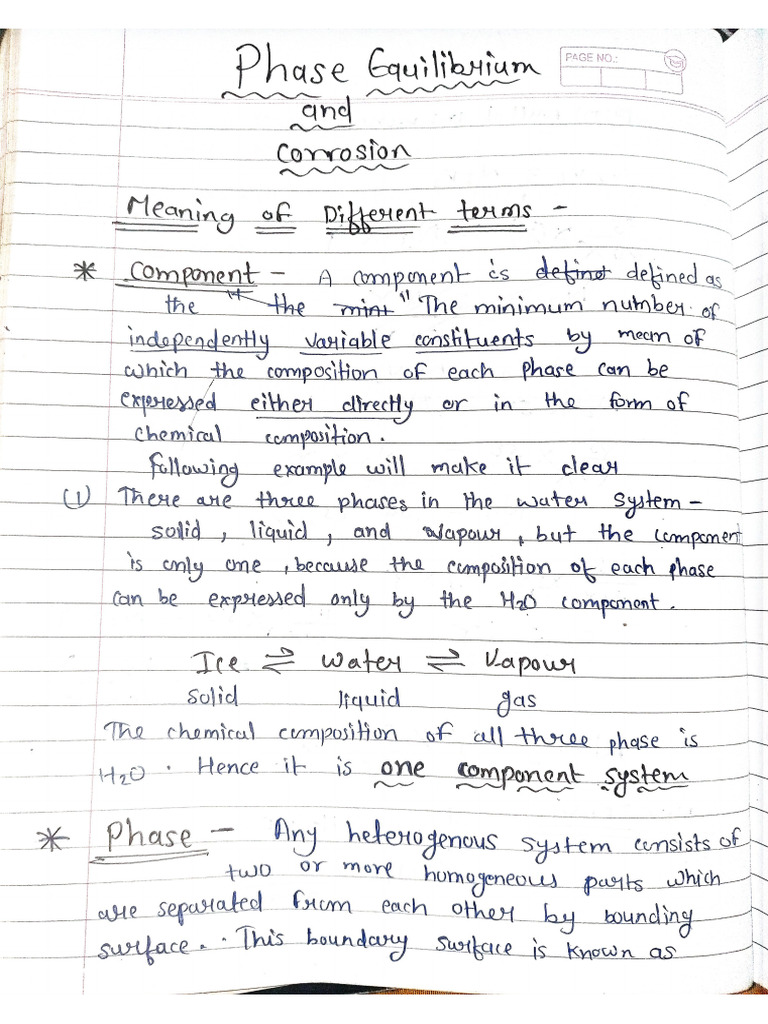 Phase Equilibrium
PAGE NO.:
and
Corrosion
Meaning of Different terms -
* Component - A component is defined as
the "The minimum number of
independently variable constituents by mean of
which the composition of each phase can be
expressed either directly or in the form of
chemical composition.
following example will make it clear
(1) There are three phases in the water system -
solid, liquid, and vapour, but the component
is only one, because the composition of each phase
can be expressed only by the H2O component.
Ice ⇌ water ⇌ Vapour
solid liquid gas
The chemical composition of all three phase is
H2O. Hence it is one component system
* Phase - Any heterogenous system consists of
two or more homogeneous parts which
are separated from each other by bounding
surface. This boundary surface is known as